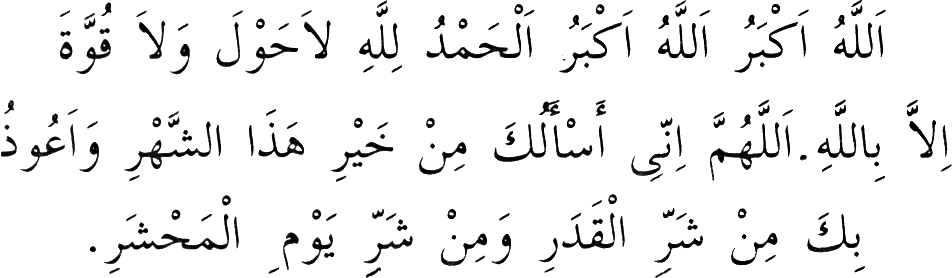 اَللَّهُ اَكْبَرُ اَللَّهُ اَكْبَرُ اَلْحَمْدُ لِلَّهِ لاَحَوْلَ وَلاَ قُوَّةَ
اِلاَّ بِاللَّهِ.اَللَّهُمَّ اِنِّى أَسْأَلُكَ مِنْ خَيْرِ هَذَا الشَّهْرِ وَاَعُوذُ
بِكَ مِنْ شَرِّ الْقَدَرِ وَمِنْ شَرِّ يَوْمِ الْمَحْشَرِ.